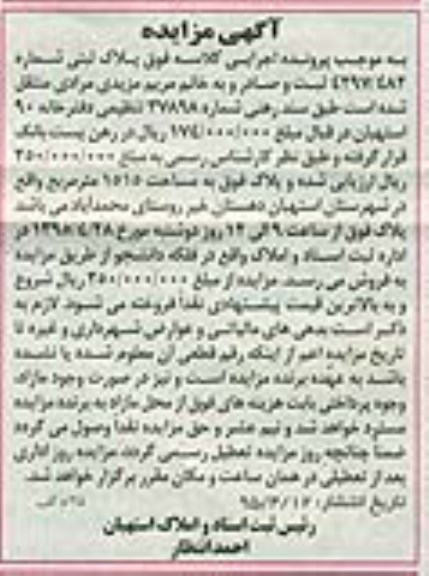 آگهی مزایده
به موجب پرونده اجرایی کلاسه فوق پلاک ثبتی شماره
۴۳۹۷/۴۸۳ ثبت و صادر و به خانم مریم مزیدی مرادی منتقل
شده است طبق سند رهنی شماره ۳۷۸۹۸ تنظیمی دفترخانه ۹۰
استهبان در قبال مبلغ ۱۷۴/۰۰۰/۰۰۰ ریال در رهن پست بانک
قرار گرفته و طبق نظر کارشناس رسمی به مبلغ ۲۵۰/۰۰۰/۰۰۰
ریال ارزیابی شده و پلاک فوق به مساحت ۱۵۱۵ مترمربع واقع
در شهرستان استهبان دهستان خیر روستای محمدآباد می باشد
پلاک فوق از ساعت ۹ الی ۱۲ روز دوشنبه مورخ در
اداره ثبت اسناد و املاک واقع در فلکه دانشجو از طریق مزایده
به فروش می رسد. مزایده از مبلغ ۲۵۰/۰۰۰/۰۰۰ ریال شروع
و به بالاترین قیمت پیشنهادی نقدا فروخته می شود. لازم به
ذکر است بدهی های مالیاتی و عوارض شهرداری و غیره تا
تاریخ مزایده اعم از اینکه رقم قطعی آن معلوم شده یا نشده
باشد به عهده برنده مزایده است و نیز در صورت وجود مازاد
وجوه پرداختی بابت هزینه های فوق از محل مازاد به برنده مزایده
مسترد خواهد شد و نیم عشر و حق مزایده نقدا وصول می گردد
ضمناً چنانچه روز مزایده تعطیل رسمی گردد مزایده روز اداری
بعد از تعطیلی در همان ساعت و مکان مقرر برگزار خواهد شد.
تاریخ انتشار: ۹۵/۳/۱۶
رئیس ثبت اسناد و املاک استهبان
احمد انتظار